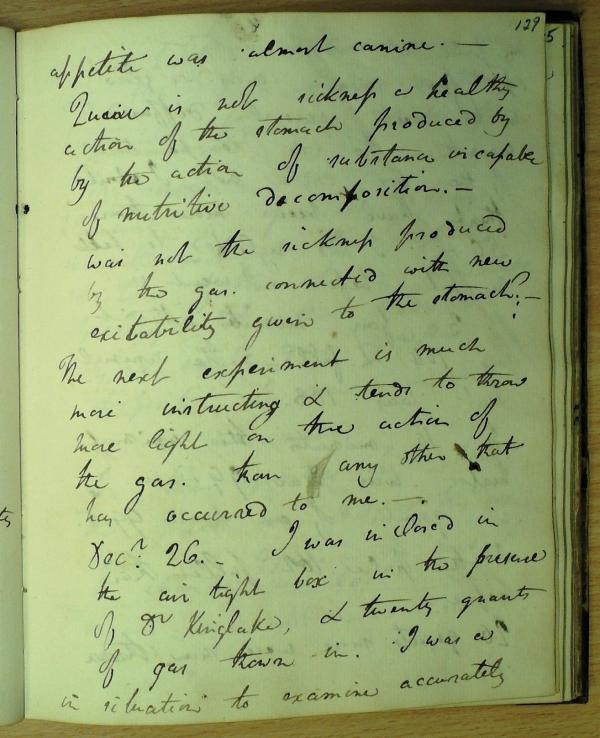 129
appetite was almost canine. —
Quaere is not sickness a healthy
action of the stomach produced by
by the action of substance incapable
of nutritive decomposition. —
was not the sickness produced
by the gas. connected with new
exitability given to the stomach? —
The next experiment is much
more instructing & tends to throw
more light on the action of
the gas. than any other that
has occurred to me. —.
Decr. 26. — I was inclosed in
the air tight box in the presence
of Dr Kinglake, & twenty quarts
of gas thrown in. I was a
in situation to examine accurately
5